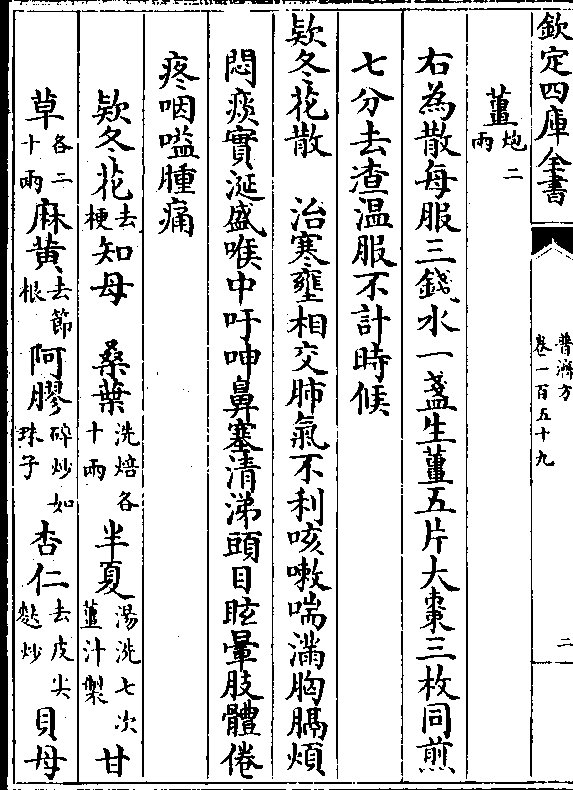 欽定四庫全書
普濟方
卷一百五十九
二
薑炮二兩
右為散每服三錢水一盞生薑五片大棗三枚同煎
七分去渣温服不計時候
欵冬花散　治寒壅相交肺氣不利咳嗽喘滿胸膈煩
悶痰實涎盛喉中吁呻鼻塞清涕頭目眩暈肢體倦
疼咽嗌腫痛
欵冬花去梗知母　桑葉洗焙各十兩　半夏湯洗七次薑汁製　甘
草各二十兩麻黄去節根　阿膠碎炒如珠子　杏仁去皮尖麩炒　貝母